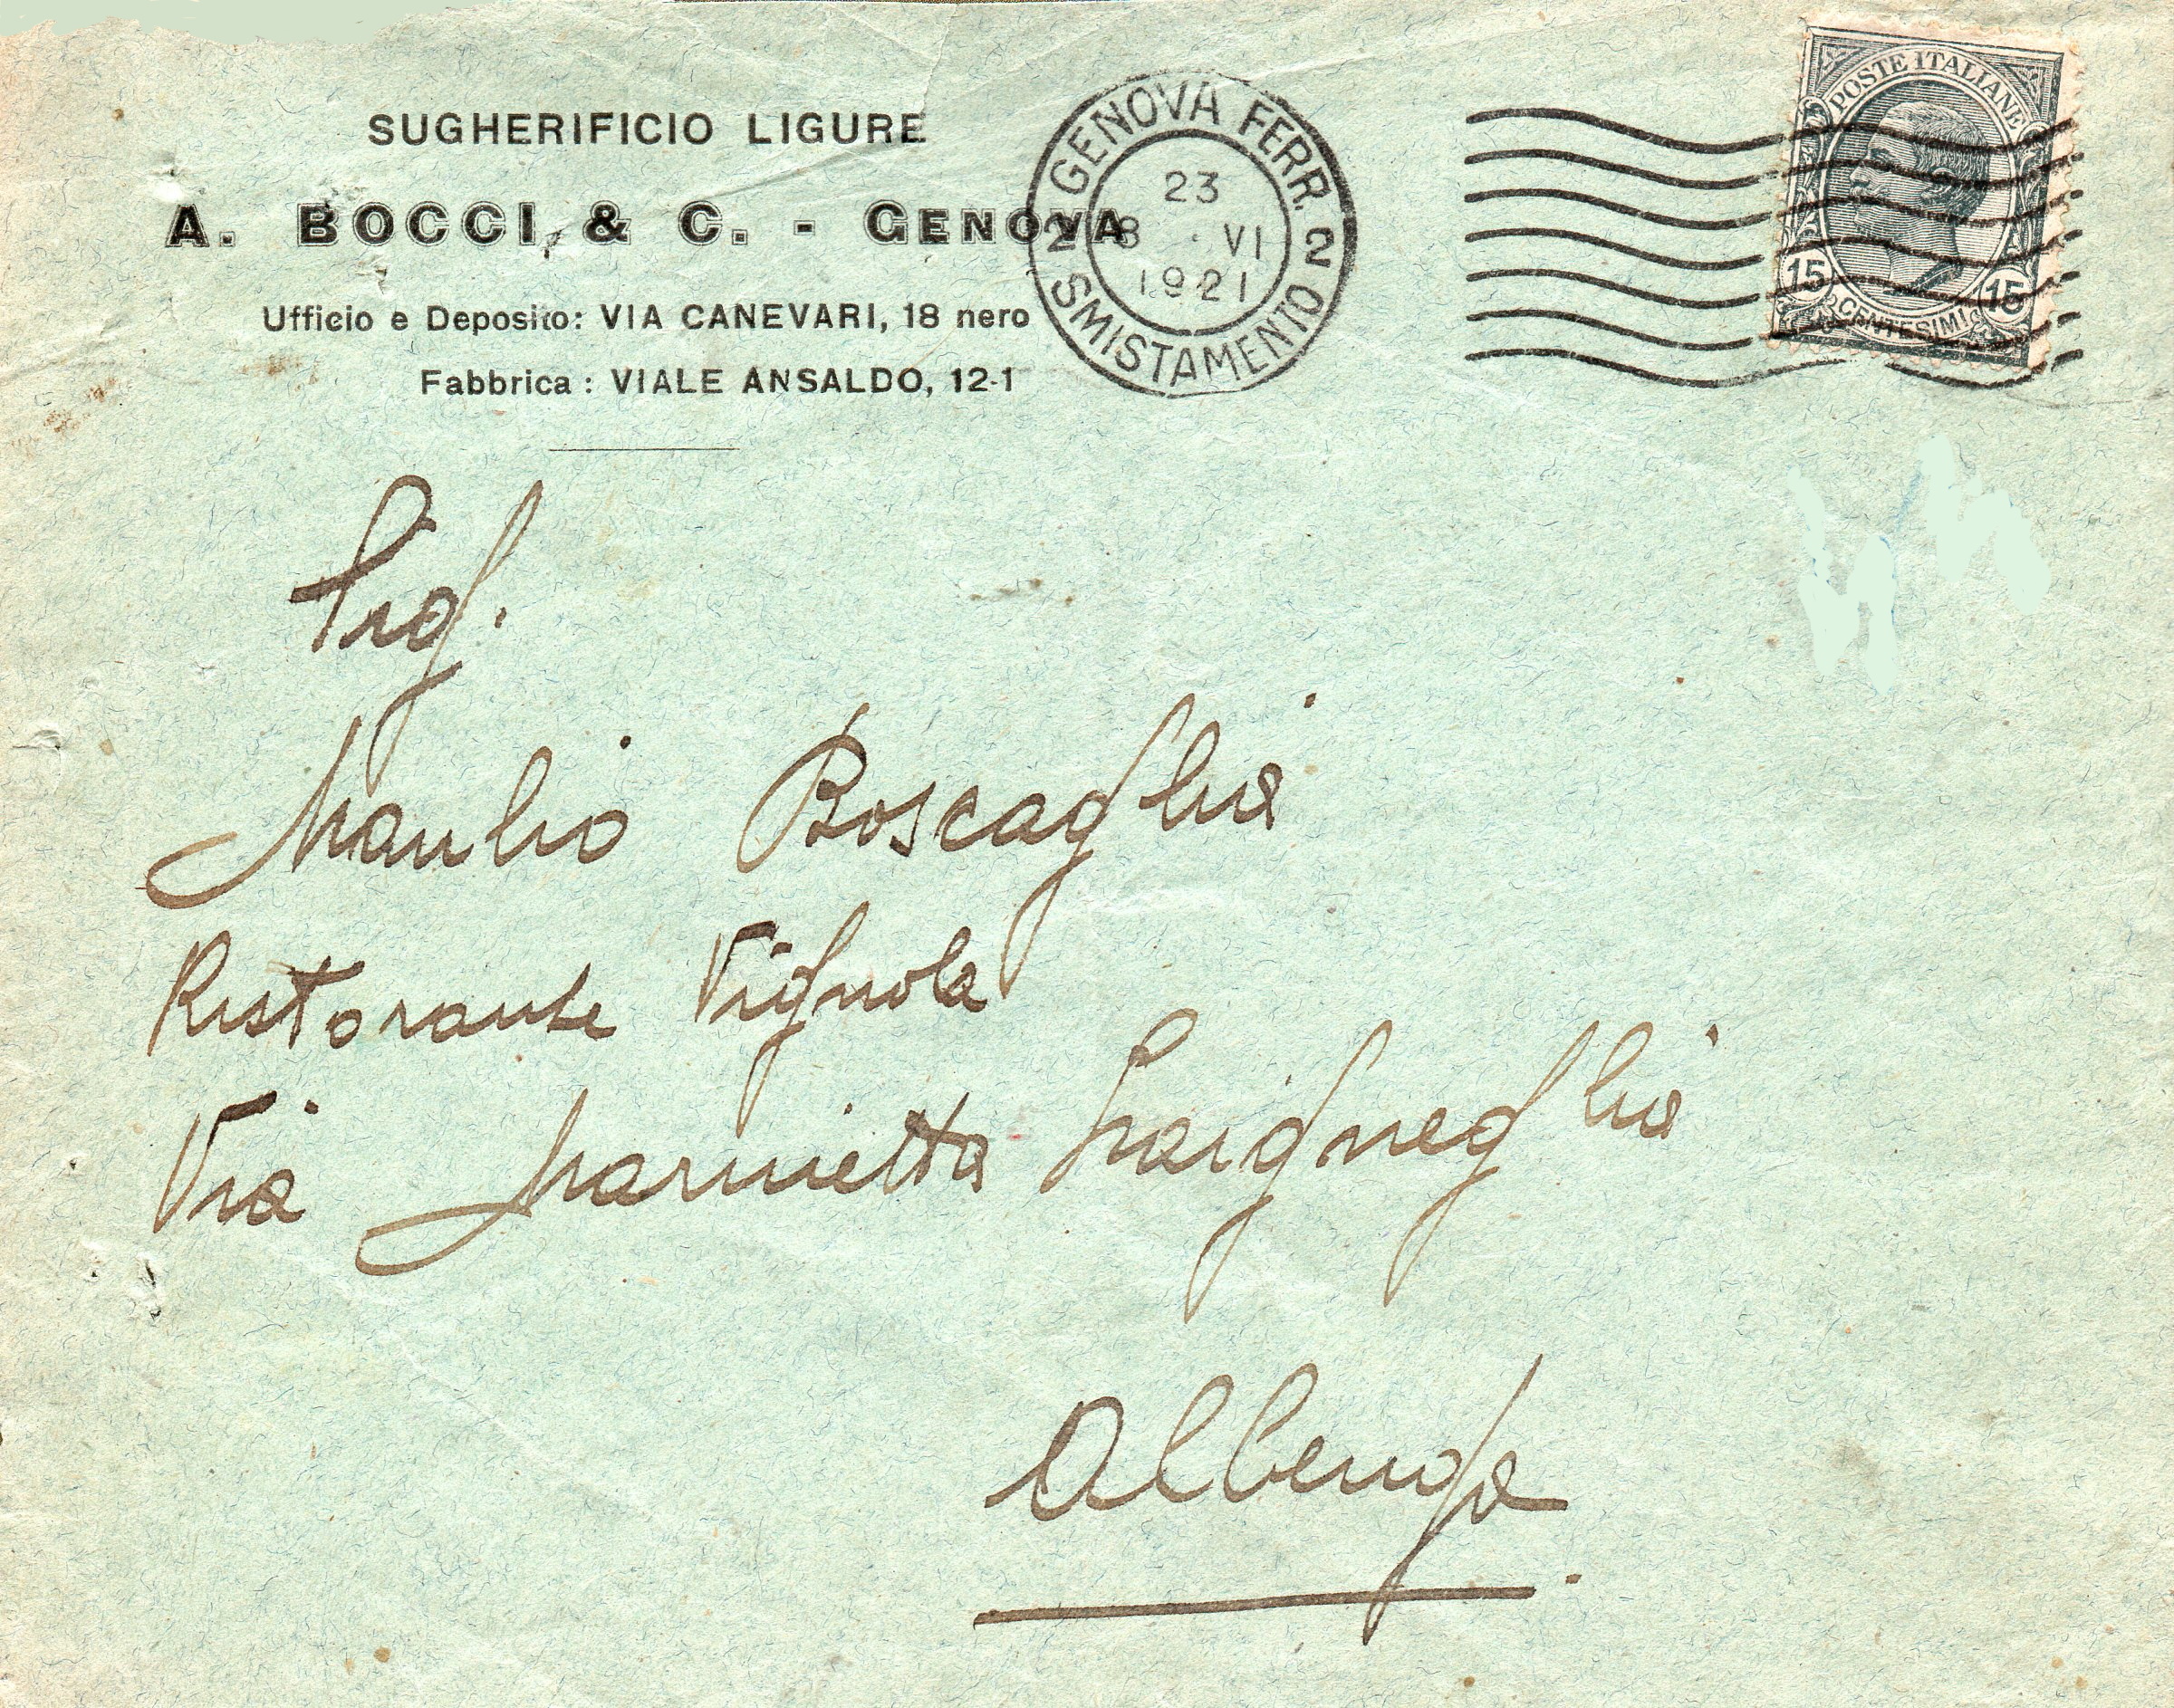 SUGHERIFICIO LIGURE
A. BOCCI & C. - GENOVA
Ufficio e Deposito: VIA CANEVARI, 18 nero
Fabbrica: VIALE ANSALDO, 12-1
2 GENOVA FERR. 2
23
8 . VI
1921
SMISTAMENTO
POSTE ITALIANE
15 15
CENTESIMI
Manlio Boscaglia
Ristorante Vignola
Via Marietta Laigneglia
Albenga